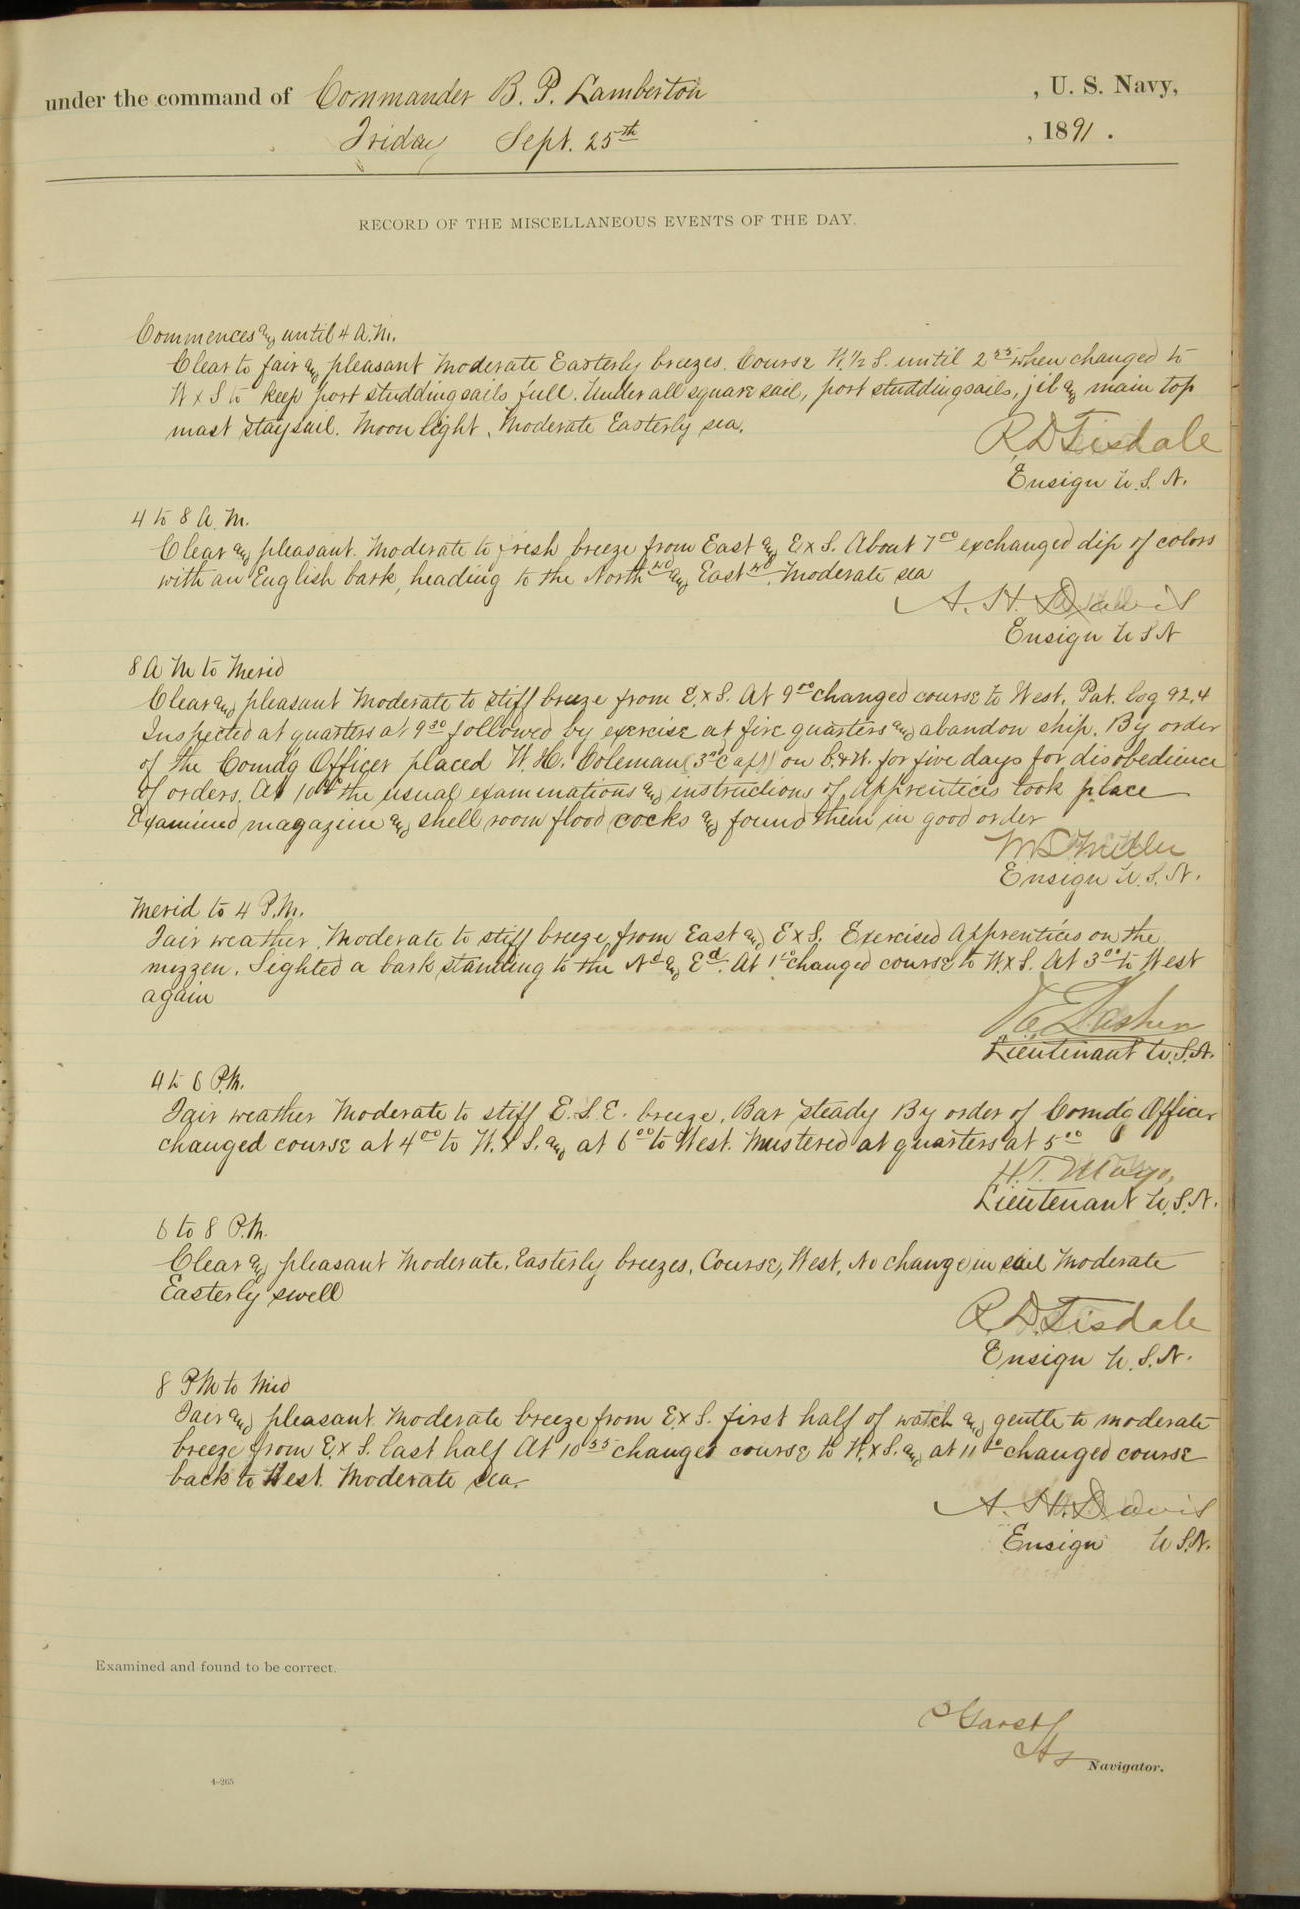 under the command of Commander B. P. Lamberton , U. S. Navy,
Friday Sept. 25th , 1891 .
RECORD OF THE MISCELLANEOUS EVENTS OF THE DAY.
Commences and until 4 A.M.
Clear to fair and pleasant Moderate Easterly breezes. Course W. ½ S. until 2 25 when changed to
W x S to keep port studdingsails full. Under all square sail, port studdingsails, jib and main top
mast staysail. Moonlight. Moderate Easterly sea.
R D Tisdale
Ensign U. S. N.
4 to 8 A. M.
Clear and pleasant. Moderate to fresh breeze from East and E x S. About 7 00 exchanged dip of colors
with an English bark, heading to the North wd and East wd. Moderate sea
A. H. Davis
Ensign U S N
8 A M to Merid
Clear and pleasant Moderate to stiff breeze from E. x S. At 9 00 changed course to West. Pat. log 92.4
Inspected at quarters at 9 30 followed by exercise at fire quarters and abandon ship. By order
of the Comdg Officer placed W. H. Coleman (3rd C app) on for five days for disobedience
of orders. At 10 the usual examinations and instructions of Apprentices took place
Examined magazine and shell room flood cocks and found them in good order
Ensign U. S. N.
Merid to 4 P.M.
Fair weather. Moderate to stiff breeze from East and E x S. Exercised Apprentices on the
mizzen. Sighted a bark standing to the Nd and Ed. At 1 changed course to W. x S. At 3 00 to West
again
Lieutenant U. S. N.
4 to 6 P.M.
Fair weather Moderate to stiff E. S. E. breeze. Bar steady By order of Comdg Officer
changed course at 4 00 to W. x S. and at 6 00 to West. Mustered at quarters at 5 00
H. T. Mayo,
Lieutenant U. S. N.
6 to 8 P.M.
Clear and pleasant Moderate, Easterly breezes, Course, West, No change in sail Moderate
Easterly swell
R. D. Tisdale
Ensign U. S. N.
8 P M to Mid
Fair and pleasant Moderate breeze from E x S. first half of watch and gentle to moderate
breeze from E. x S. last half At 10 55 changed course to W. x S. and at 11 changed course
back to West. Moderate sea.
A. H. Davis
Ensign U S. N.
Examined and found to be correct.
Navigator.
4-265